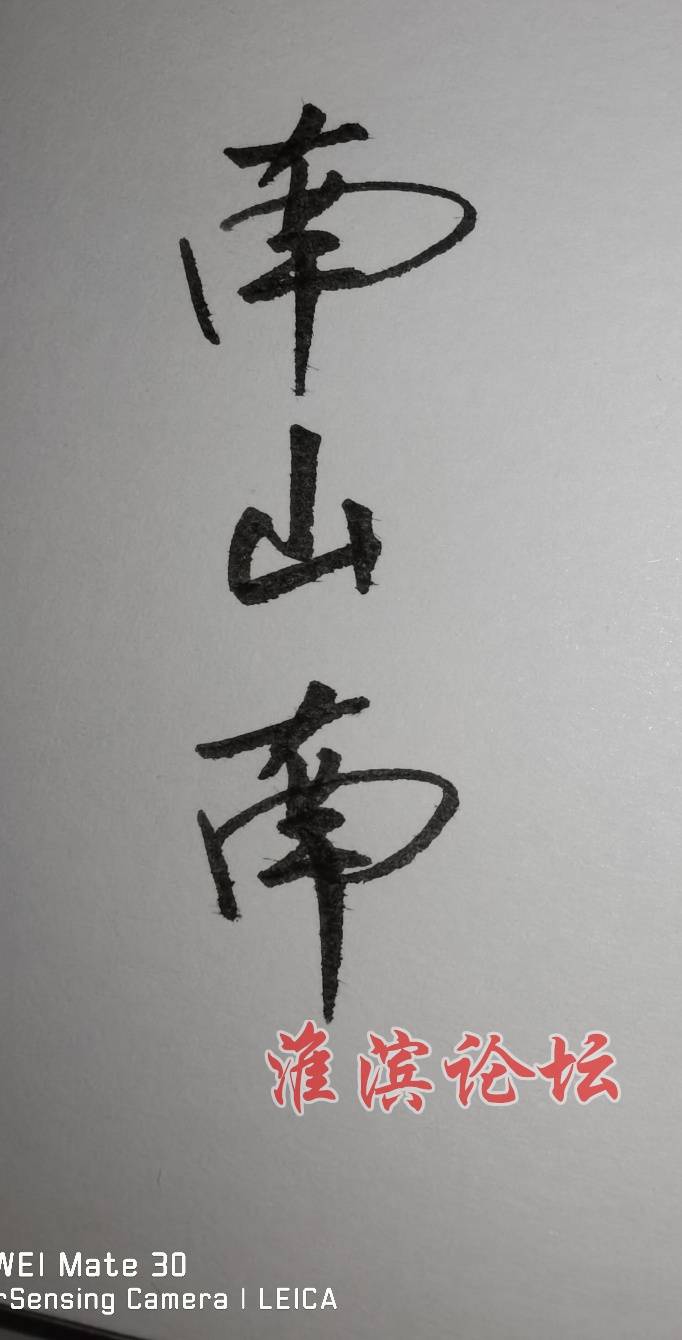 南
山
南
淮滨论坛
WEI Mate 30
rSensing Camera | LEICA